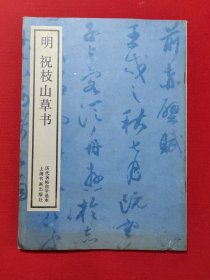 明 祝枝山草书
历代名帖自学选本
上海书画出版社
前赤壁赋
壬戌之秋七月既望
苏子与客泛舟游於赤